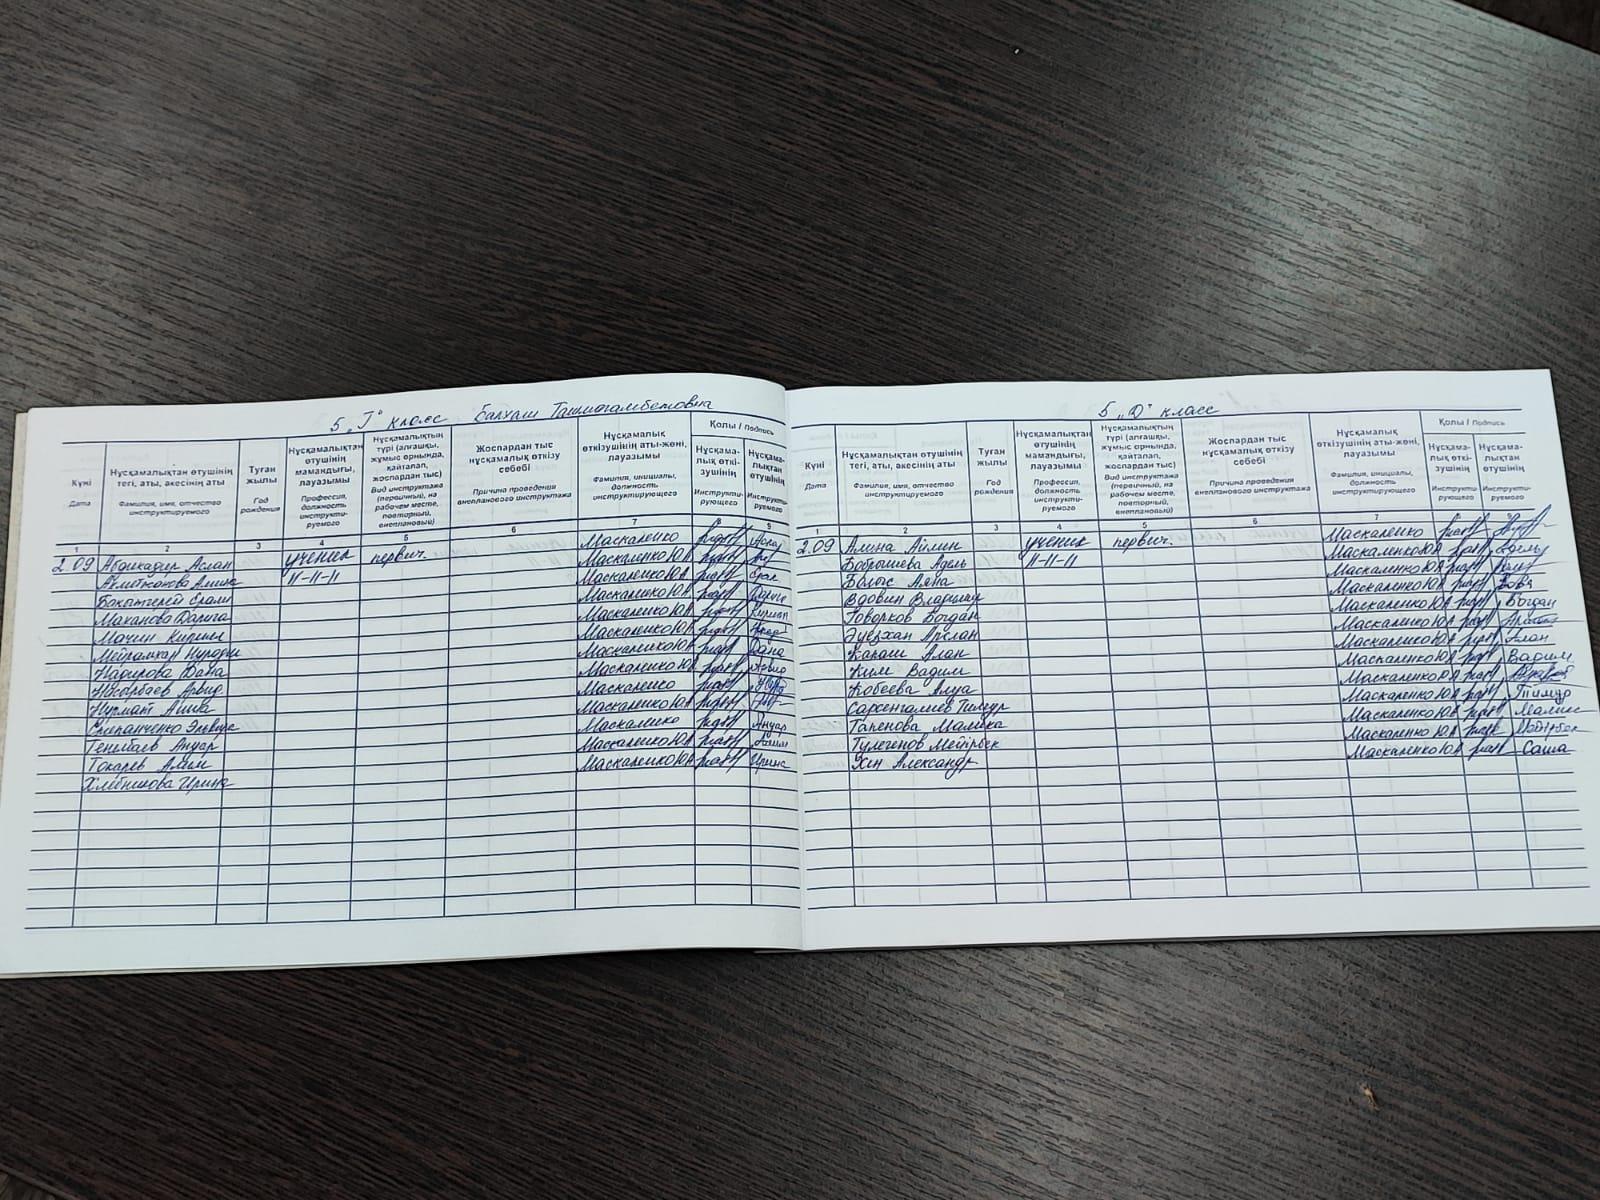 5 „Г" класс Балхаш Ташмагамбетовна
Күні
Дата
Нұсқамалықтан өтушінің тегі, аты, әкесінің аты
Фамилия, имя, отчество инструктируемого
Туған жылы
Год рождения
Нұсқамалықтан өтушінің мамандығы, лауазымы
Профессия, должность инструктируемого
Нұсқамалықтың түрі (алғашқы, жұмыс орнында, қайталап, жоспардан тыс)
Вид инструктажа (первичный, на рабочем месте, повторный, внеплановый)
Жоспардан тыс нұсқамалық өткізу себебі
Причина проведения внепланового инструктажа
Нұсқамалық өткізушінің аты-жөні, лауазымы
Фамилия, инициалы, должность инструктирующего
Қолы / Подпись
Нұсқамалық өткізушінің
Инструктирующего
Нұсқамалықтан өтушінің
Инструктируемого
1 2 3 4 5 6 7 8 9
2.09 Абдикадил Аслан ученик первич. Маскаленко
Ахметжанова Амина 11-11-11 Маскаленко ЮА
Бакытгерей Ерали Маскаленко ЮА Ерал
Маханова Дарига Маскаленко ЮА
Мачин Кирилл Маскаленко ЮА Кирилл
Мейрамхан Нурали Маскаленко ЮА
Надирова Дана Маскаленко ЮА Дана
Арвид Маскаленко ЮА
Нурмат Маскаленко
Степанченко Маскаленко ЮА
Ануар Маскаленко Ануар
Токарев Алим Маскаленко ЮА
Хлебникова Ирина Маскаленко ЮА Ирина
5 „Д" класс
Күні
Дата
Нұсқамалықтан өтушінің тегі, аты, әкесінің аты
Фамилия, имя, отчество инструктируемого
Туған жылы
Год рождения
Нұсқамалықтан өтушінің мамандығы, лауазымы
Профессия, должность инструктируемого
Нұсқамалықтың түрі (алғашқы, жұмыс орнында, қайталап, жоспардан тыс)
Вид инструктажа (первичный, на рабочем месте, повторный, внеплановый)
Жоспардан тыс нұсқамалық өткізу себебі
Причина проведения внепланового инструктажа
Нұсқамалық өткізушінің аты-жөні, лауазымы
Фамилия, инициалы, должность инструктирующего
Қолы / Подпись
Нұсқамалық өткізушінің
Инструктирующего
Нұсқамалықтан өтушінің
Инструктируемого
1 2 3 4 5 6 7
2.09 Алина Айлин ученик первич. Маскаленко
Бобрышева Адель 11-11-11 Маскаленко ЮА Адель
Болыс Аяна Маскаленко ЮА
Вдовин Владимир Маскаленко ЮА Вова
Говорков Богдан Маскаленко ЮА Богдан
Әуезхан Арслан Маскаленко ЮА
Караш Алан Маскаленко ЮА Алан
Ким Вадим Маскаленко ЮА Вадим
Кобеева Алуа Маскаленко ЮА
Сарсенгалиев Тимур Маскаленко ЮА Тимур
Тапенова Малика Маскаленко ЮА
Тулегенов Мейірбек Маскаленко ЮА Мейірбек
Хен Александр Маскаленко ЮА Саша